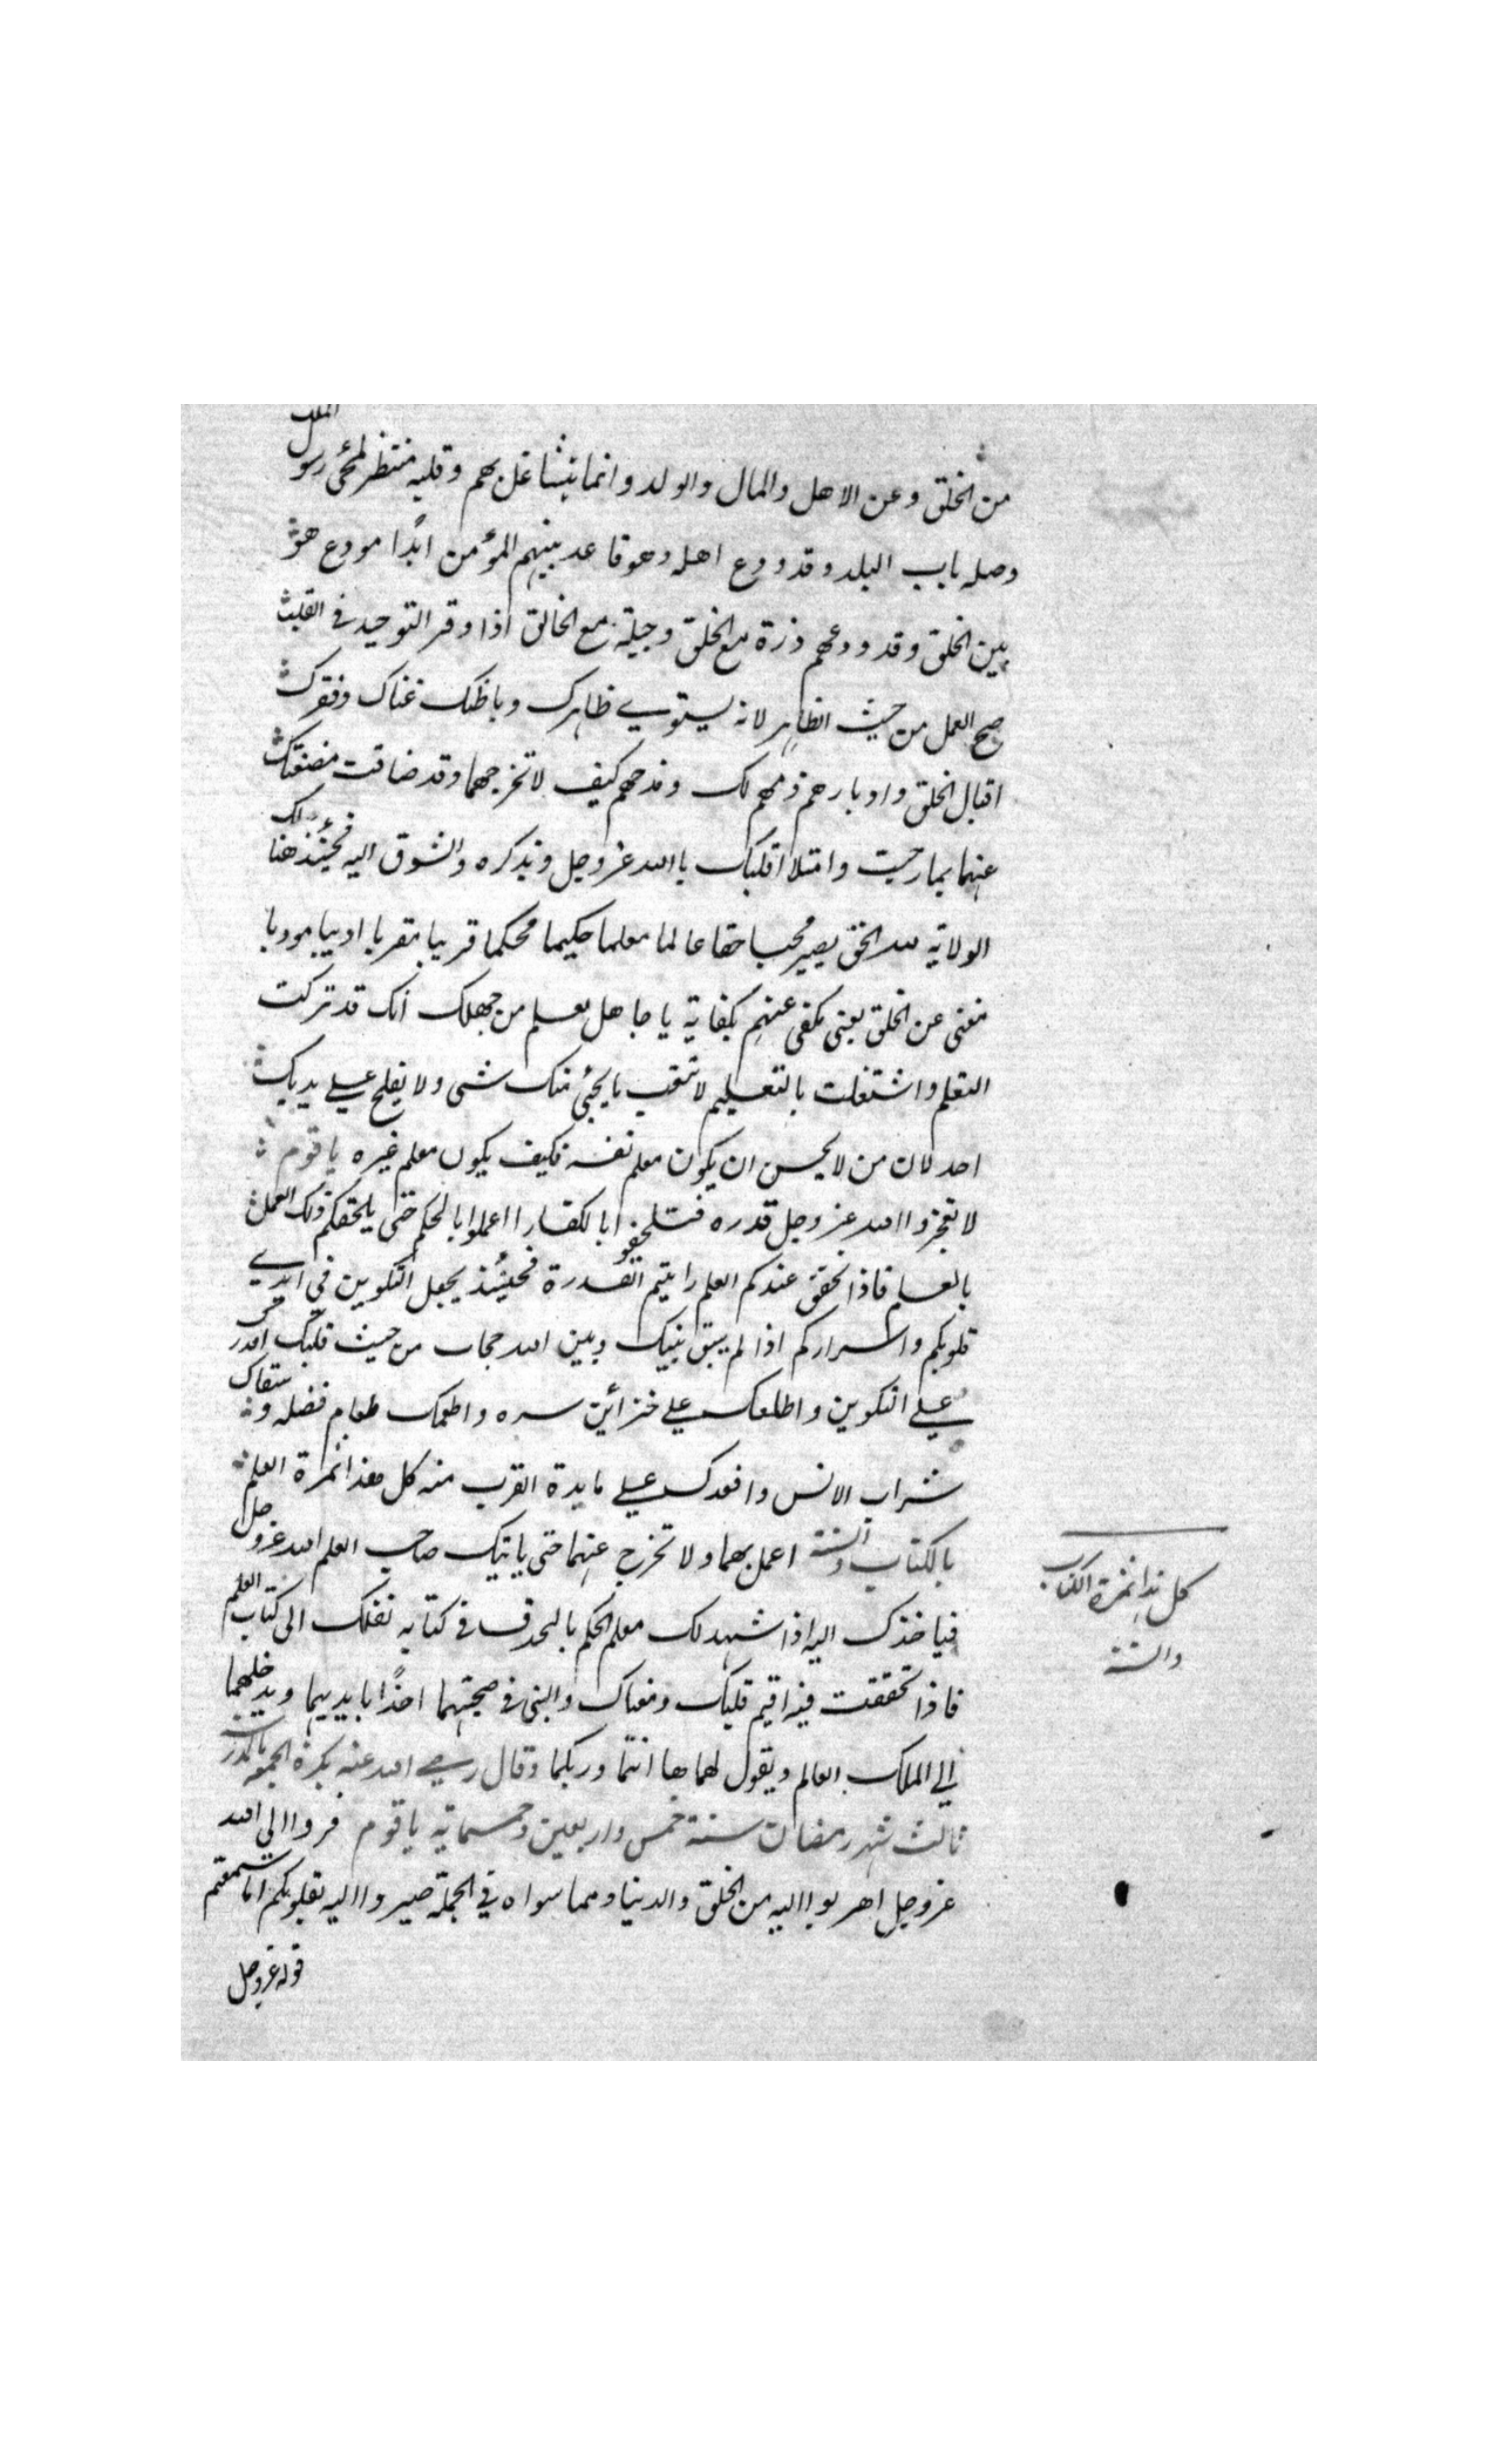 من الخلق وعن الاهل والمال والولد وانما يتشاغل بهم وقلبه منتظر لمجئ رسول الملك
وصله باب البلد وقد ودع اهله وهو قاعد بينهم المؤمن ابدًا مودع هو
بين الخلق وقد ودعهم ذرة مع الخلق وجبلة مع الخالق اذا وقر التوحيد في القلب
صح العمل من حيث الظاهر لانه يستوي ظاهرك وباطنك غناك وفقرك
اقبال الخلق وادبارهم ذمهم لك ومدحهم كيف لا تخرجهما وقد ضاقت مضغتك
عنهما بما رحبت وامتلا قلبك باالله عز وجل وبذكره والشوق اليه فحينئذ هنالك
الولاية لله الحق يصير محبا حقا عالما معلما حكيما محكما قريبا مقربا اديبا مودبا
مغنى عن الخلق يعنى مكفى عنهم بكفاية يا جاهل تعلم من جهلك انك قد تركت
التعلم واشتغلت بالتعليم لا تتعب ما يجئ منك شى ولا يفلح على يديك
احد لان من لا يحسن ان يكون معلم نفسه فكيف يكون معلم غيره يا قوم
لا تعجزوا الله عز وجل قدره فتلحقوا بالكفار اعملوا بالحكم حتى يلحقكم ذلك العمل
بالعلم فاذا تحقق عندكم العلم رايتم القدرة فحينئذ يجعل التكوين في ايدي
قلوبكم واسراركم اذا لم يبق بينك وبين الله حجاب من حيث قلبك اقدرك
على التكوين واطلعك على خزائن سره واطعمك طعام فضله وسقاك
شراب الانس واقعدك على مايدة القرب منه كل هذا ثمرة العلم
بالكتاب والسنة اعمل بهما ولا تخرج عنهما حتى ياتيك صاحب العلم الله عز وجل
فياخذك اليه اذا شهد لك معلم الحكم بالحذق في كتابه نقلك الى كتاب العلم
فاذا تحققت فيه اقيم قلبك ومعناك والنبى في صحبتهما اخذًا بايديهما ويدخلهما
الي الملك العالم ويقول لهما ها انتما وربكما وقال رضي الله عنه بكرة الجمعه بالمدرسة
ثالث شهر رمضان سنة خمس واربعين وخمسماية يا قوم فروا الي الله
عز وجل اهربوا اليه من الخلق والدنيا ومما سواه في الجملة صيروا اليه بقلوبكم اما سمعتم
قوله عز وجل
كل هذا ثمرة الكتاب
والسنة